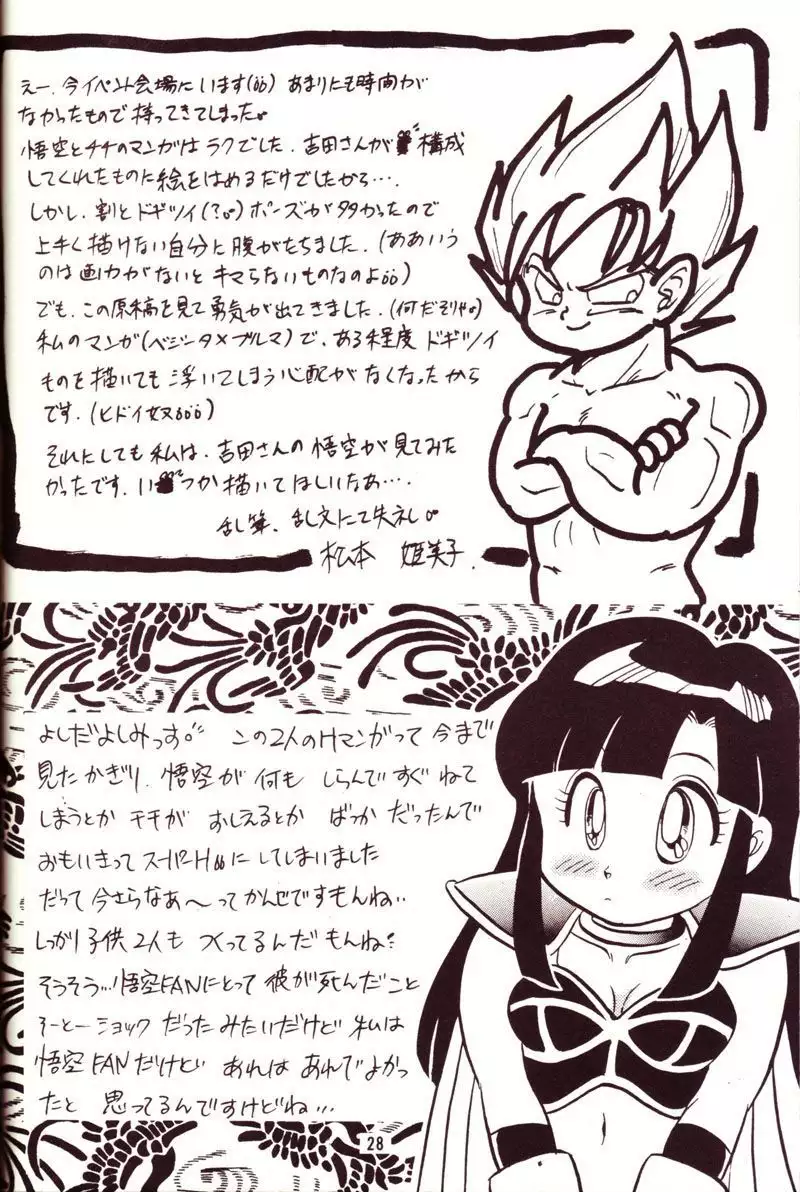 えー、今イベント会場にいます(öö) あまりにも時間が
なかったもので持ってきてしまった。
悟空とチチのマンガはラクでした。吉田さんが構成
してくれたものに絵をはめるだけでしたから…。
しかし、割とドギツイ(?。)ポーズが多かったので
上手く描けない自分に腹がたちました。(ああいう
のは画力がないとキマらないものなのよöö)
でも、この原稿を見て勇気が出てきました。(何だそりゃ。)
私のマンガ(ベジータ×ブルマ)で、ある程度 ドギツイ
ものを描いても浮いてしまう心配がなくなったから
です。(ヒドイ奴ööö)
それにしても私は、吉田さんの悟空が見てみた
かったです。いつか描いてほしいなあ…。
乱筆、乱文にて失礼。
松本 姫美子.
よしだよしみっす。 この2人のHマンガって 今まで
見たかぎり、悟空が 何も しらんですぐ ねて
しまうとか チチが おしえるとか ばっか だったんで
おもいきって スーパーHööにしてしまいました
だって今さらなあ〜ってかんじですもんね…
しっかり子供2人も つくってるんだもんね?
そうそう…!悟空FANにとって 彼が死んだこと
そーとーショック だったみたいだけど 私は
悟空FANだけど あれは あれでよかっ
たと 思ってるんですけどね…
28